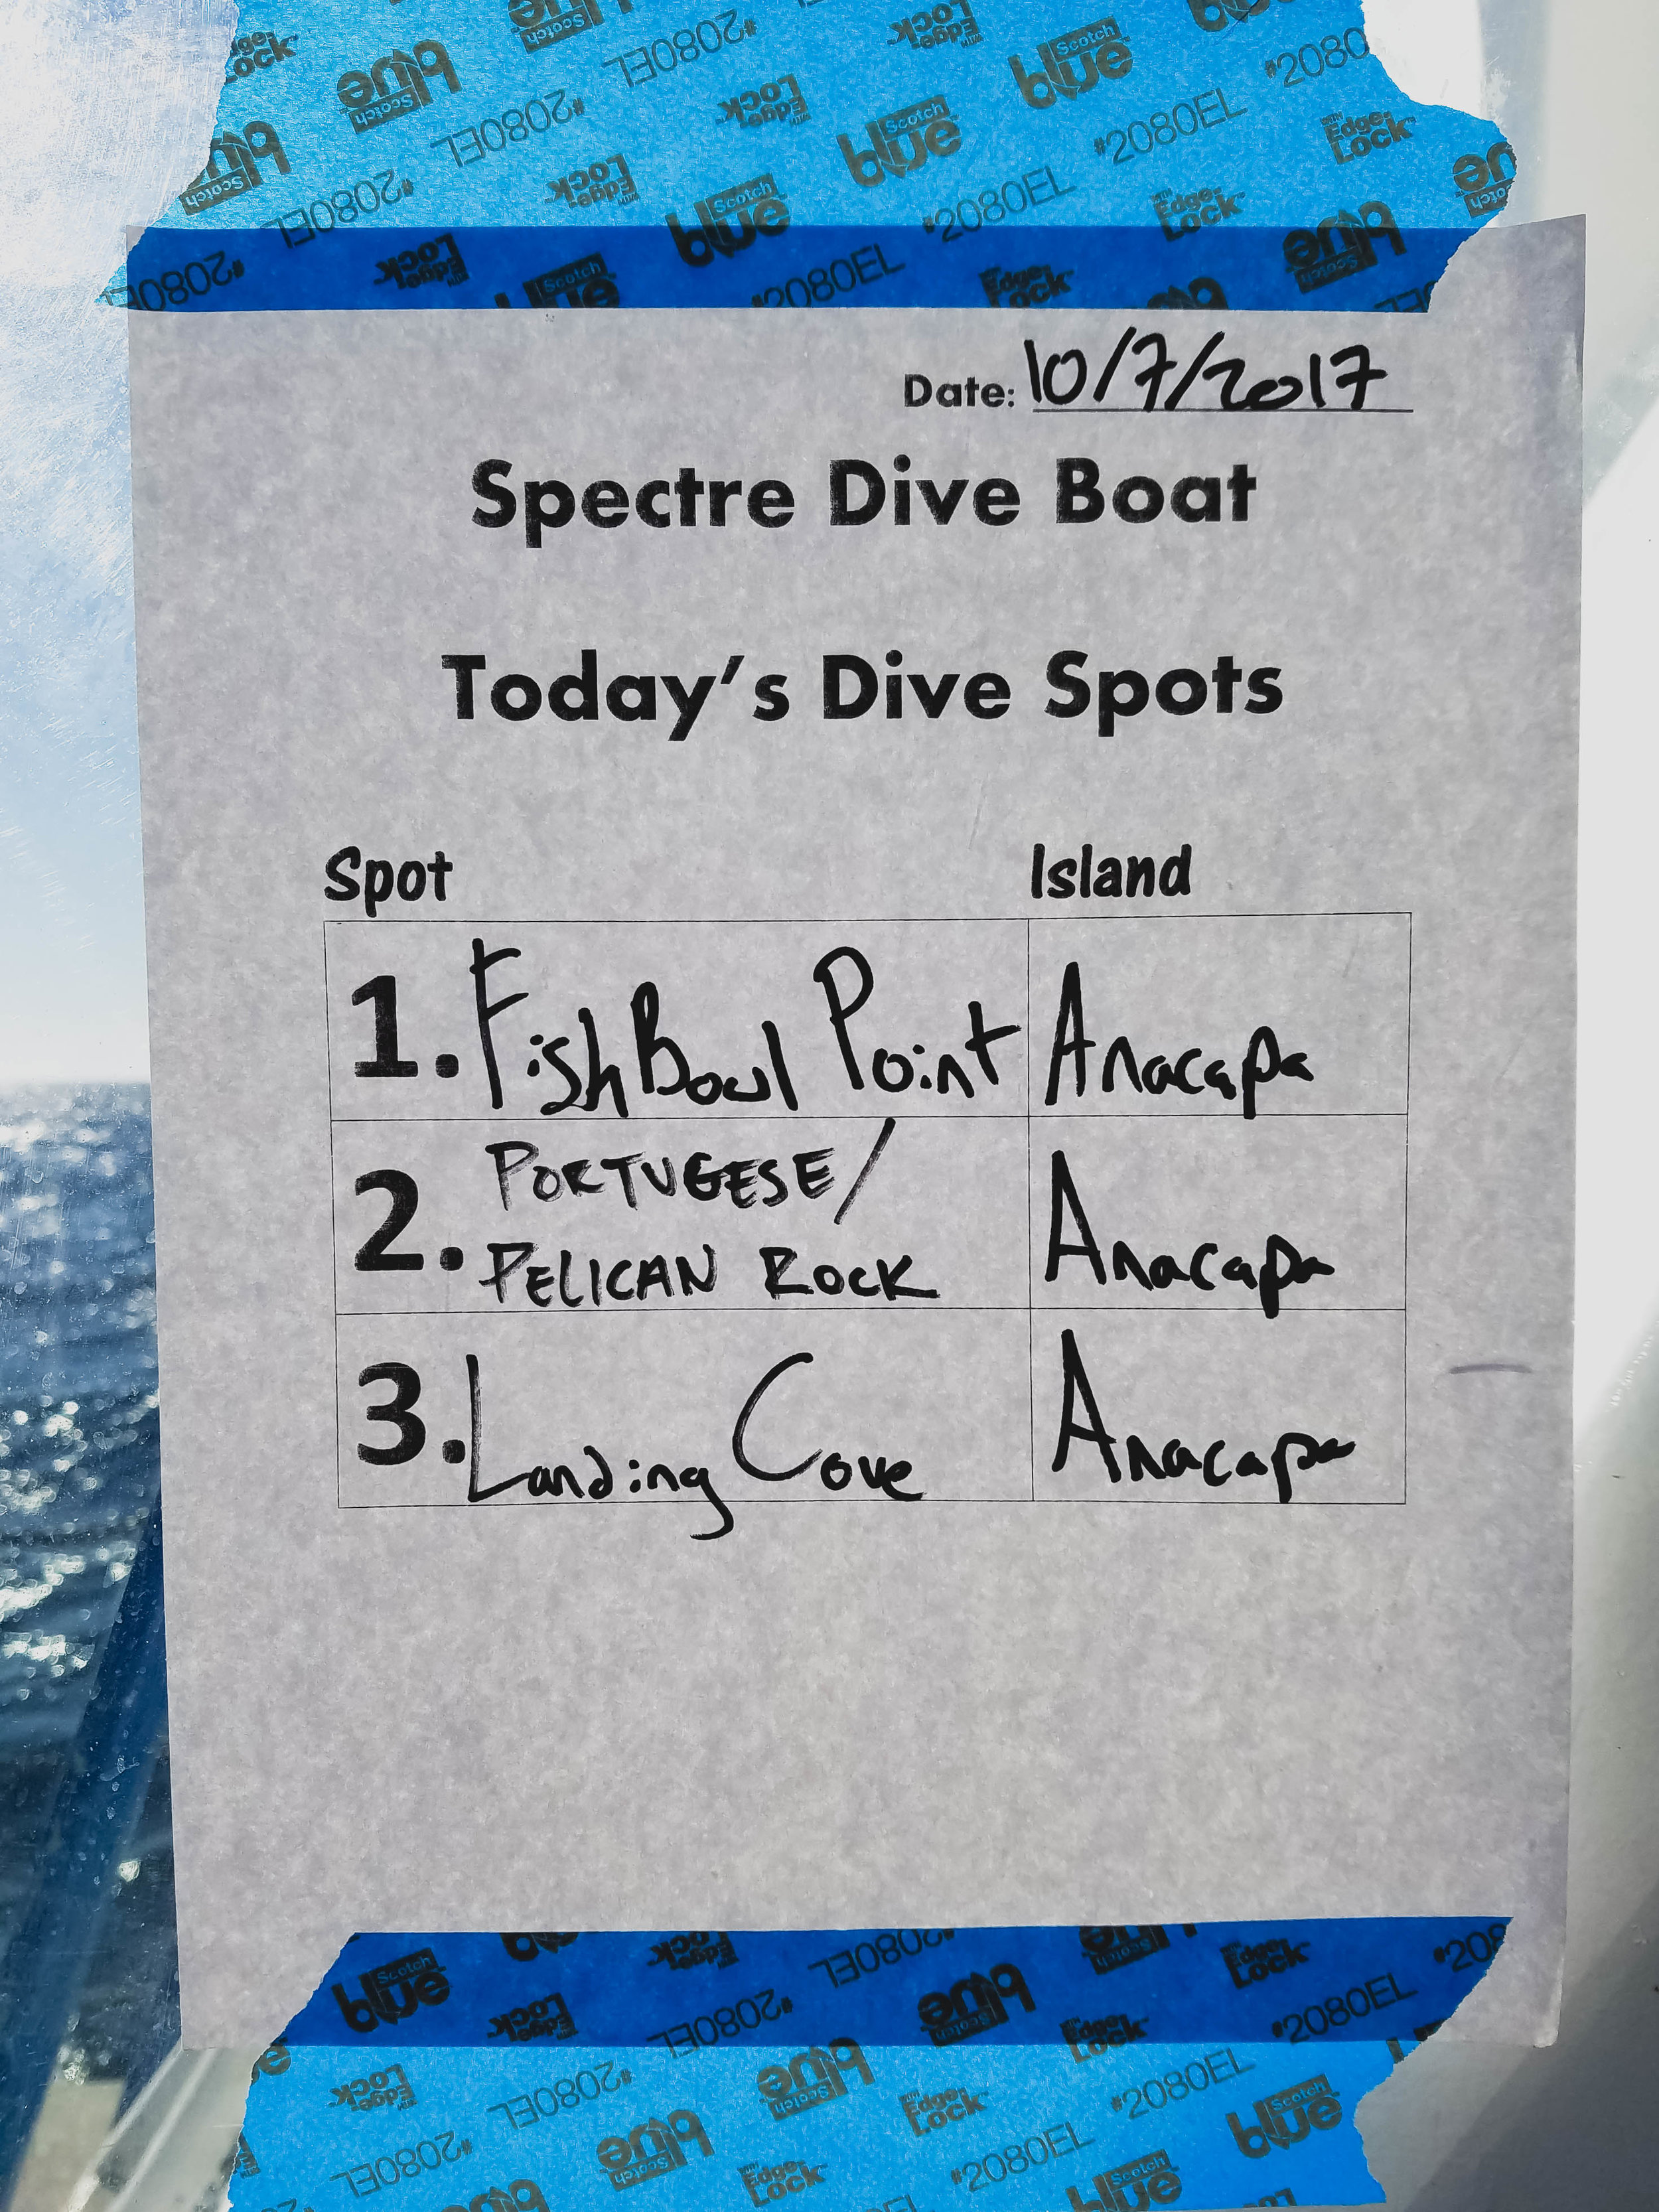 Date: 10/7/2017
Spectre Dive Boat
Today's Dive Spots
Spot Island
1. Fish Bowl Point Anacapa
2. PORTUGESE/
PELICAN ROCK Anacapa
3. Landing Cove Anacapa
Scotch blue
#2080EL
WITH Edge-Lock™